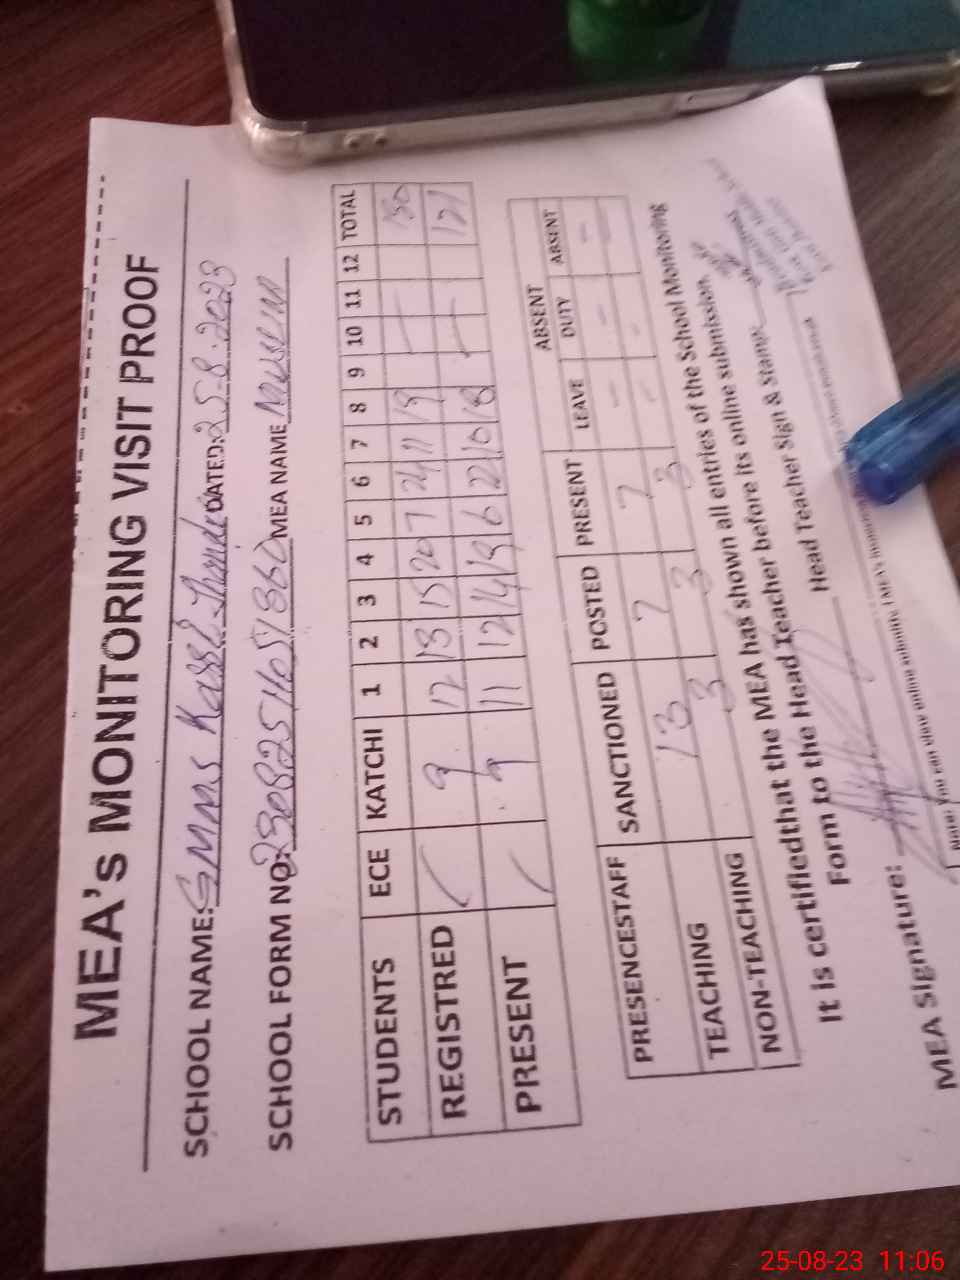 MEA's MONITORING VISIT PROOF
SCHOOL NAME: GMMS DATED: 25-8-2023
SCHOOL FORM NO: MEA NAME
STUDENTS ECE KATCHI 1 2 3 4 5 6 7 8 9 10 11 12 TOTAL
REGISTRED 9 12 13 15 20 7 24 11 19 130
PRESENT 9 11 12 14 19 6 22 10 18 121
ABSENT
PRESENCESTAFF SANCTIONED POSTED PRESENT LEAVE DUTY ABSENT
TEACHING 13 7 7 - - -
NON-TEACHING 3 3 3 - - -
It is certifiedthat the MEA has shown all entries of the School Monitoring
Form to the Head Teacher before its online submission.
MEA Signature: Head Teacher Sign & Stamp:
Note: You can view online submitted MEA's monitoring
25-08-23 11:06